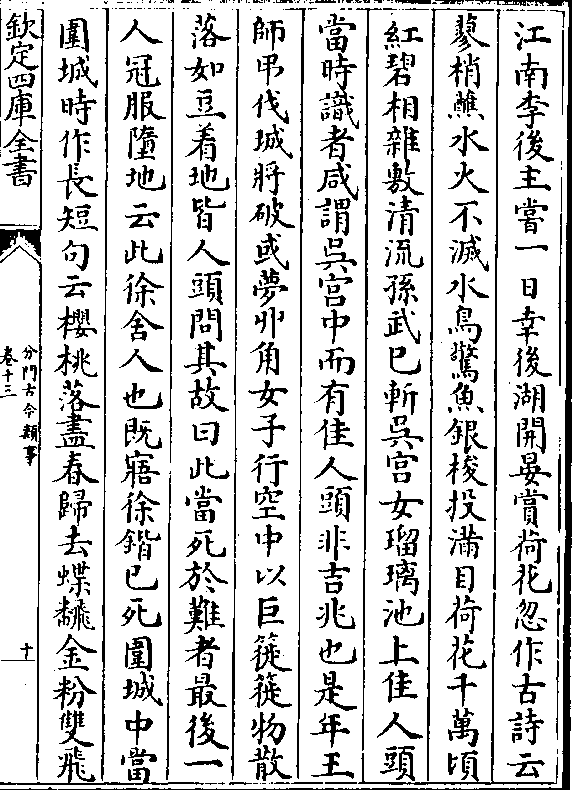 江南李後主嘗一日幸後湖開宴賞荷花忽作古詩云
蓼梢蘸水火不滅水鳥驚魚銀梭投滿目荷花千萬頃
紅碧相雜敷清流孫武已斬吳宫女瑠璃池上佳人頭
當時識者咸謂吳宫中而有佳人頭非吉兆也是年王
師弔伐城將破或夢丱角女子行空中以巨簁簁物散
落如豆着地皆人頭問其故曰此當死於難者最後一
人冠服墮地云此徐舍人也既寤徐鍇已死圍城中當
圍城時作長短句云櫻桃落盡春歸去蝶翻金粉雙飛
欽定四庫全書
分門古今類事
卷十三
十